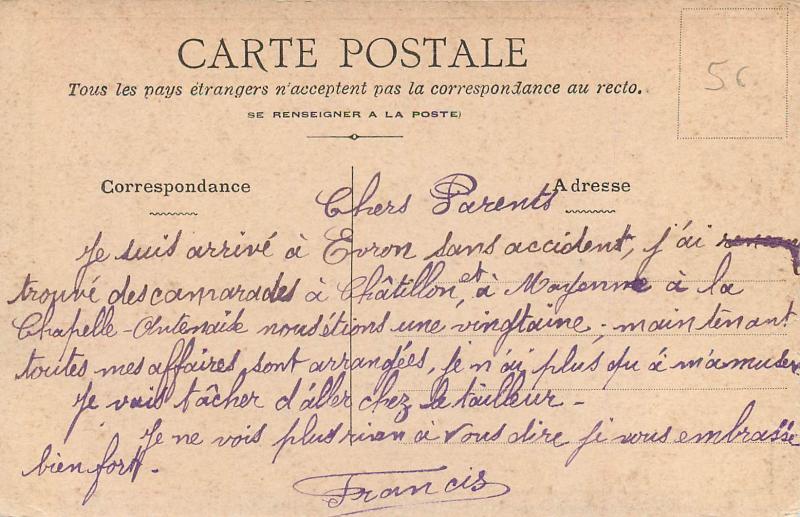 CARTE POSTALE
Tous les pays étrangers n'acceptent pas la correspondance au recto.
SE RENSEIGNER A LA POSTE)
5€
Correspondance
Adresse
Chers Parents
Je suis arrivé à Evron sans accident, j'ai
trouvé des camarades à Châtillon, et à Mayenne à la
Chapelle-Antenaise nous étions une vingtaine; maintenant
toutes mes affaires sont arrangées, je n'ai plus qu'à m'amuser
Je vais tâcher d'aller chez le tailleur-
Je ne vois plus rien à vous dire je vous embrasse
bien fort.
Francis